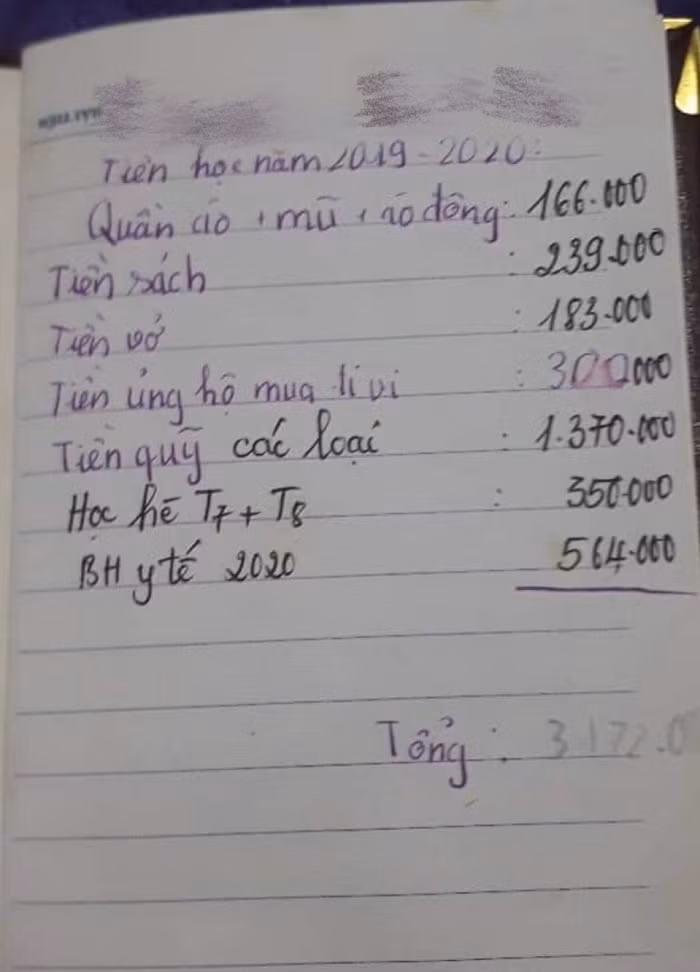 Tiền học năm 2019-2020:
Quần áo, mũ, áo đông: 166.000
Tiền sách : 239.000
Tiền vở : 183.000
Tiền ủng hộ mua ti vi : 300.000
Tiền quỹ các loại : 1.370.000
Học hè T7 + T8 : 350.000
BH y tế 2020 564.000
Tổng : 3.172.0